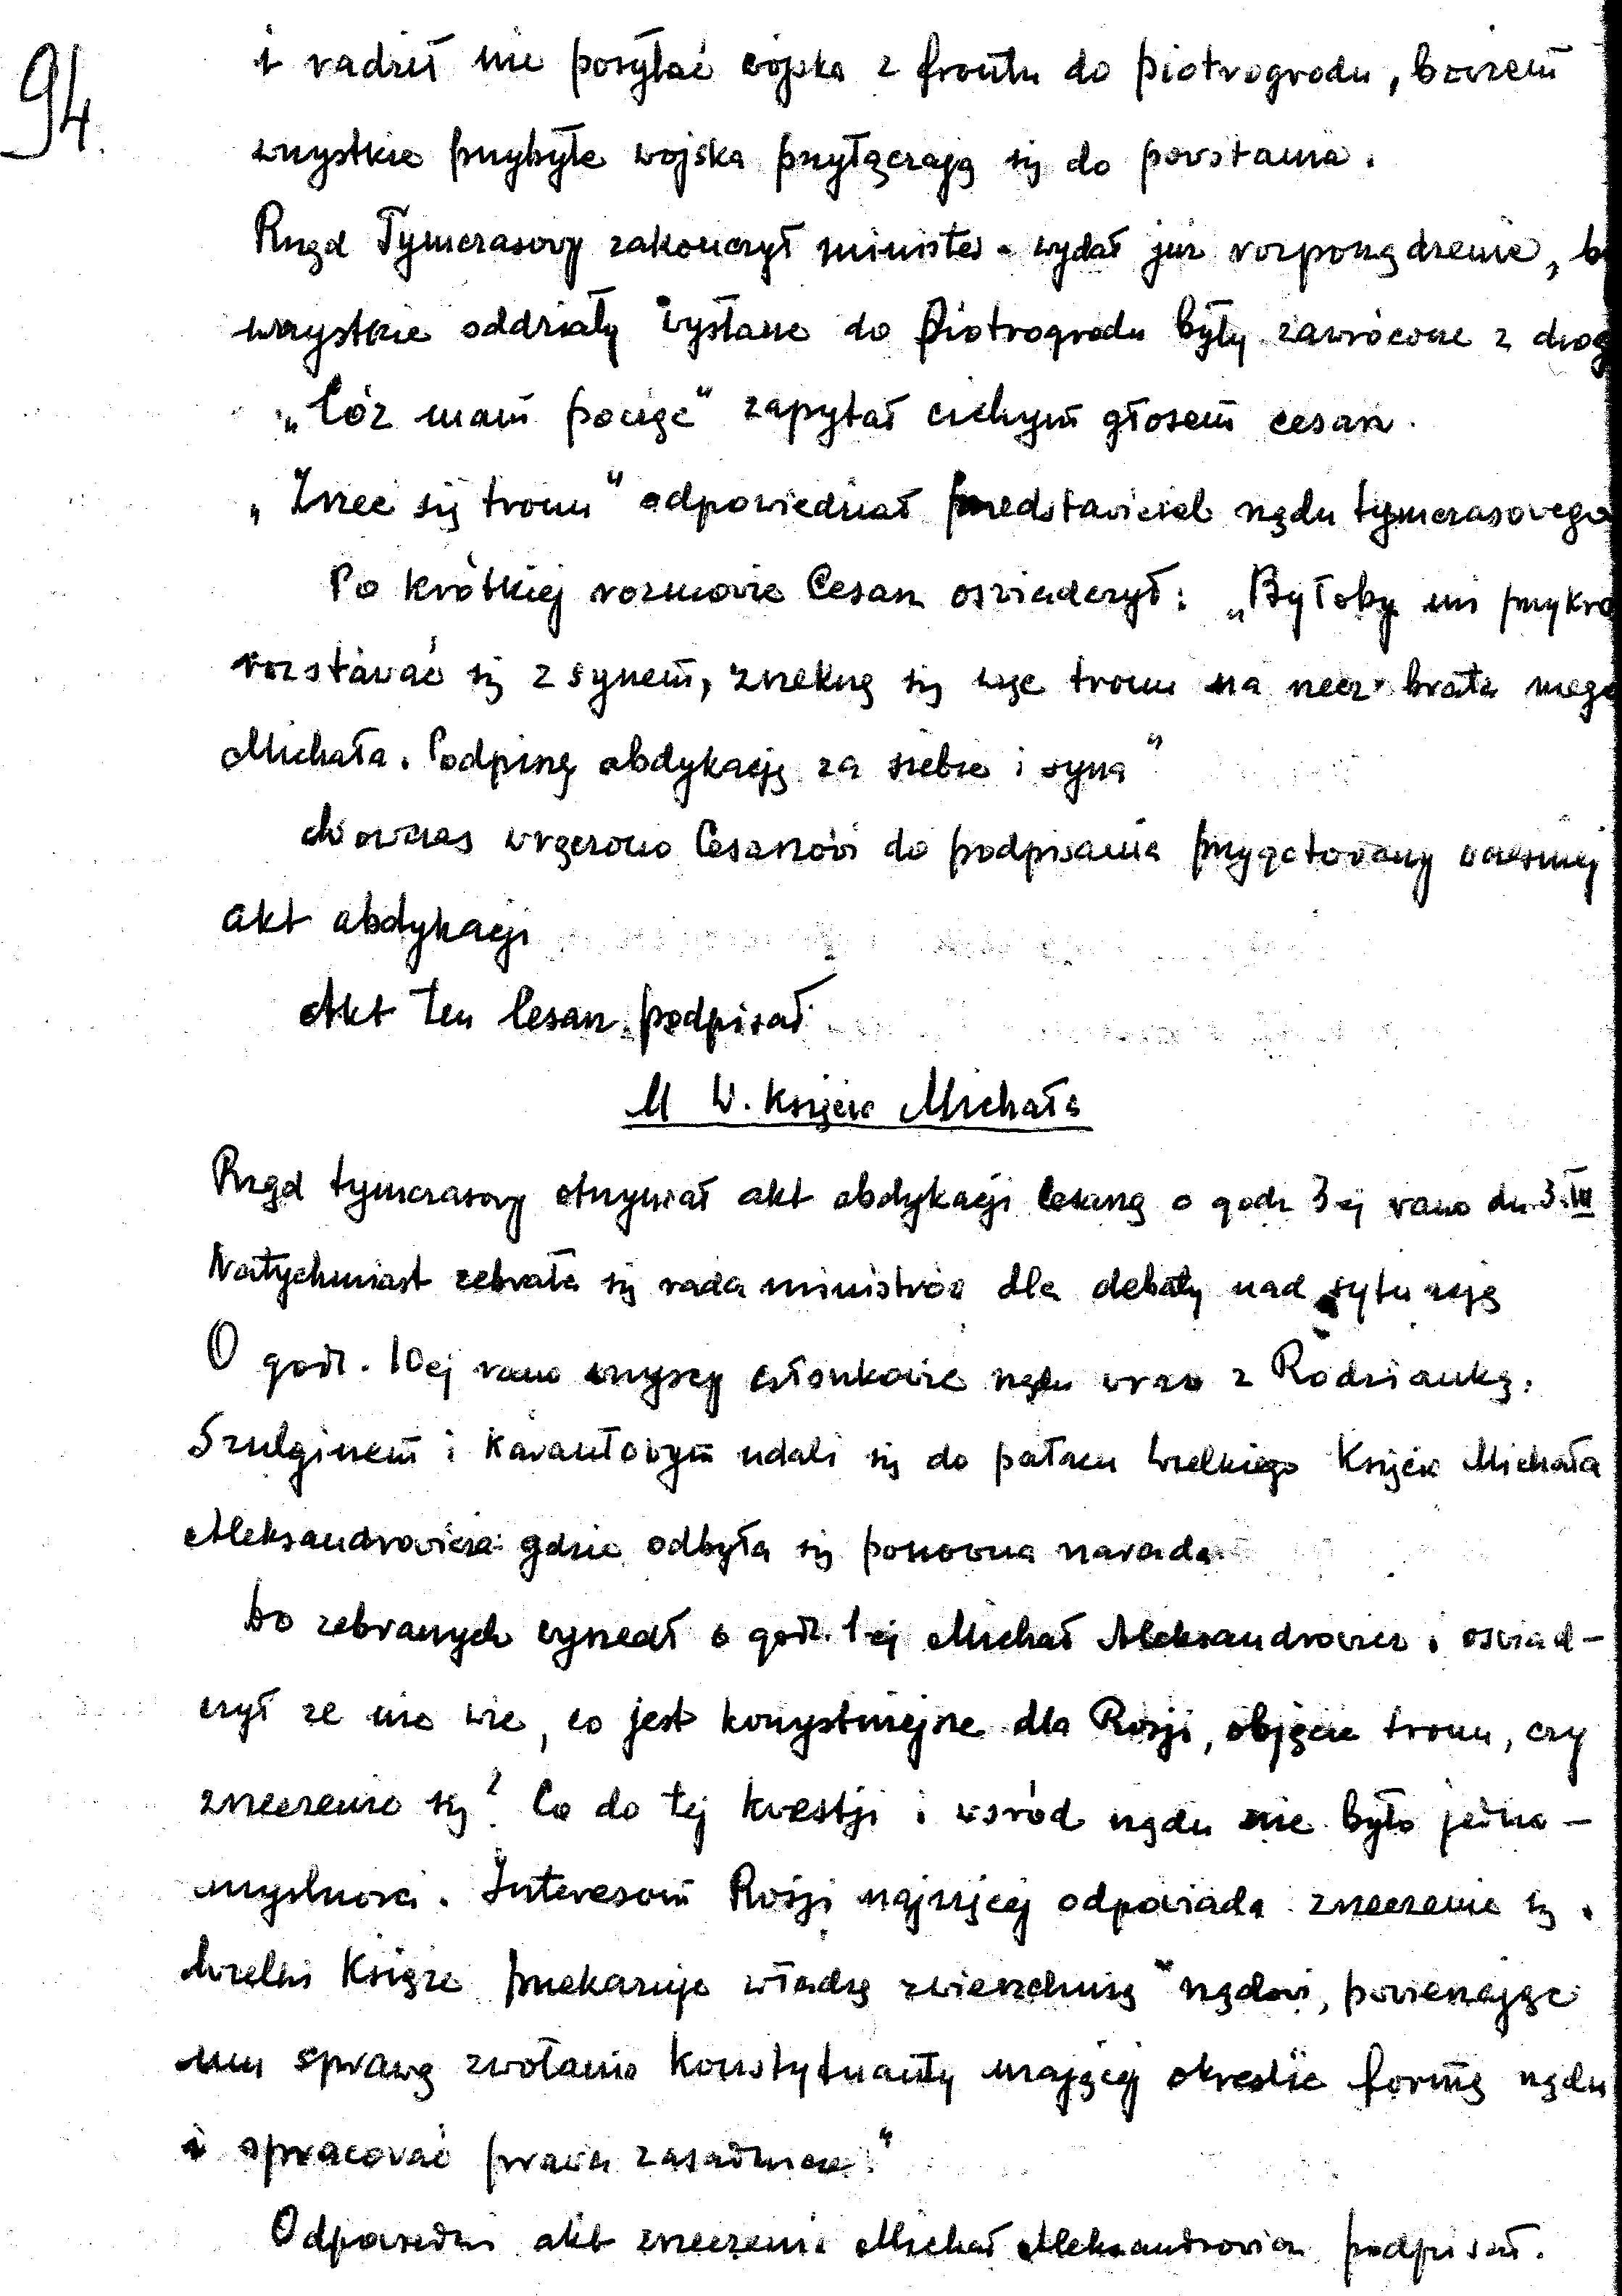 94.
i radził nie posyłać wojska z frontu do Piotrogrodu, bowiem
wszystkie przybyłe wojska przyłączają się do powstania.
Rząd Tymczasowy zakończył minister - wydał już rozporządzenie, b
wszystkie oddziały wysłane do Piotrogrodu były zawrócone z drog
„Cóż mam począć" zapytał cichym głosem cesarz.
„Zrzec się tronu" odpowiedział przedstawiciel rządu tymczasowego
Po krótkiej rozmowie Cesarz oświadczył: „Byłoby mi przykro
rozstawać się z synem, zrzeknę się więc tronu na rzecz brata mego
Michała. Podpiszę abdykację za siebie i syna"
Wowczas wręczono Cesarzowi do podpisania przygotowany wcześniej
akt abdykacji
Akt ten Cesarz podpisał
U W. Księcia Michała
Rząd tymczasowy otrzymał akt abdykacji Cesarza o godz 3-ej rano dn. 3.III
Natychmiast zebrała się rada ministrów dla debaty nad sytuacją
O godz. 10ej rano wszyscy członkowie rządu wraz z Rodzianką,
Szulginem i Karaułowym udali się do pałacu Wielkiego Księcia Michała
Aleksandrowicza gdzie odbyła się ponowna narada.
Do zebranych wyszedł o godz. 1-ej Michał Aleksandrowicz i oświad-
czył że nie wie, co jest korzystniejsze dla Rosji, objęcie tronu, czy
zrzeczenie się? Co do tej kwestji i wśród rządu nie było jedno-
myślności. Interesom Rosji najwięcej odpowiada zrzeczenie się.
Wielki Książę przekazuje władzę zwierzchnią rządowi, powierzając
mu sprawę zwołania Konstytuanty mającej określić formę rządu
i opracować prawa zasadnicze."
Odpowiedni akt zrzeczenia Michał Aleksandrowicz podpisał.